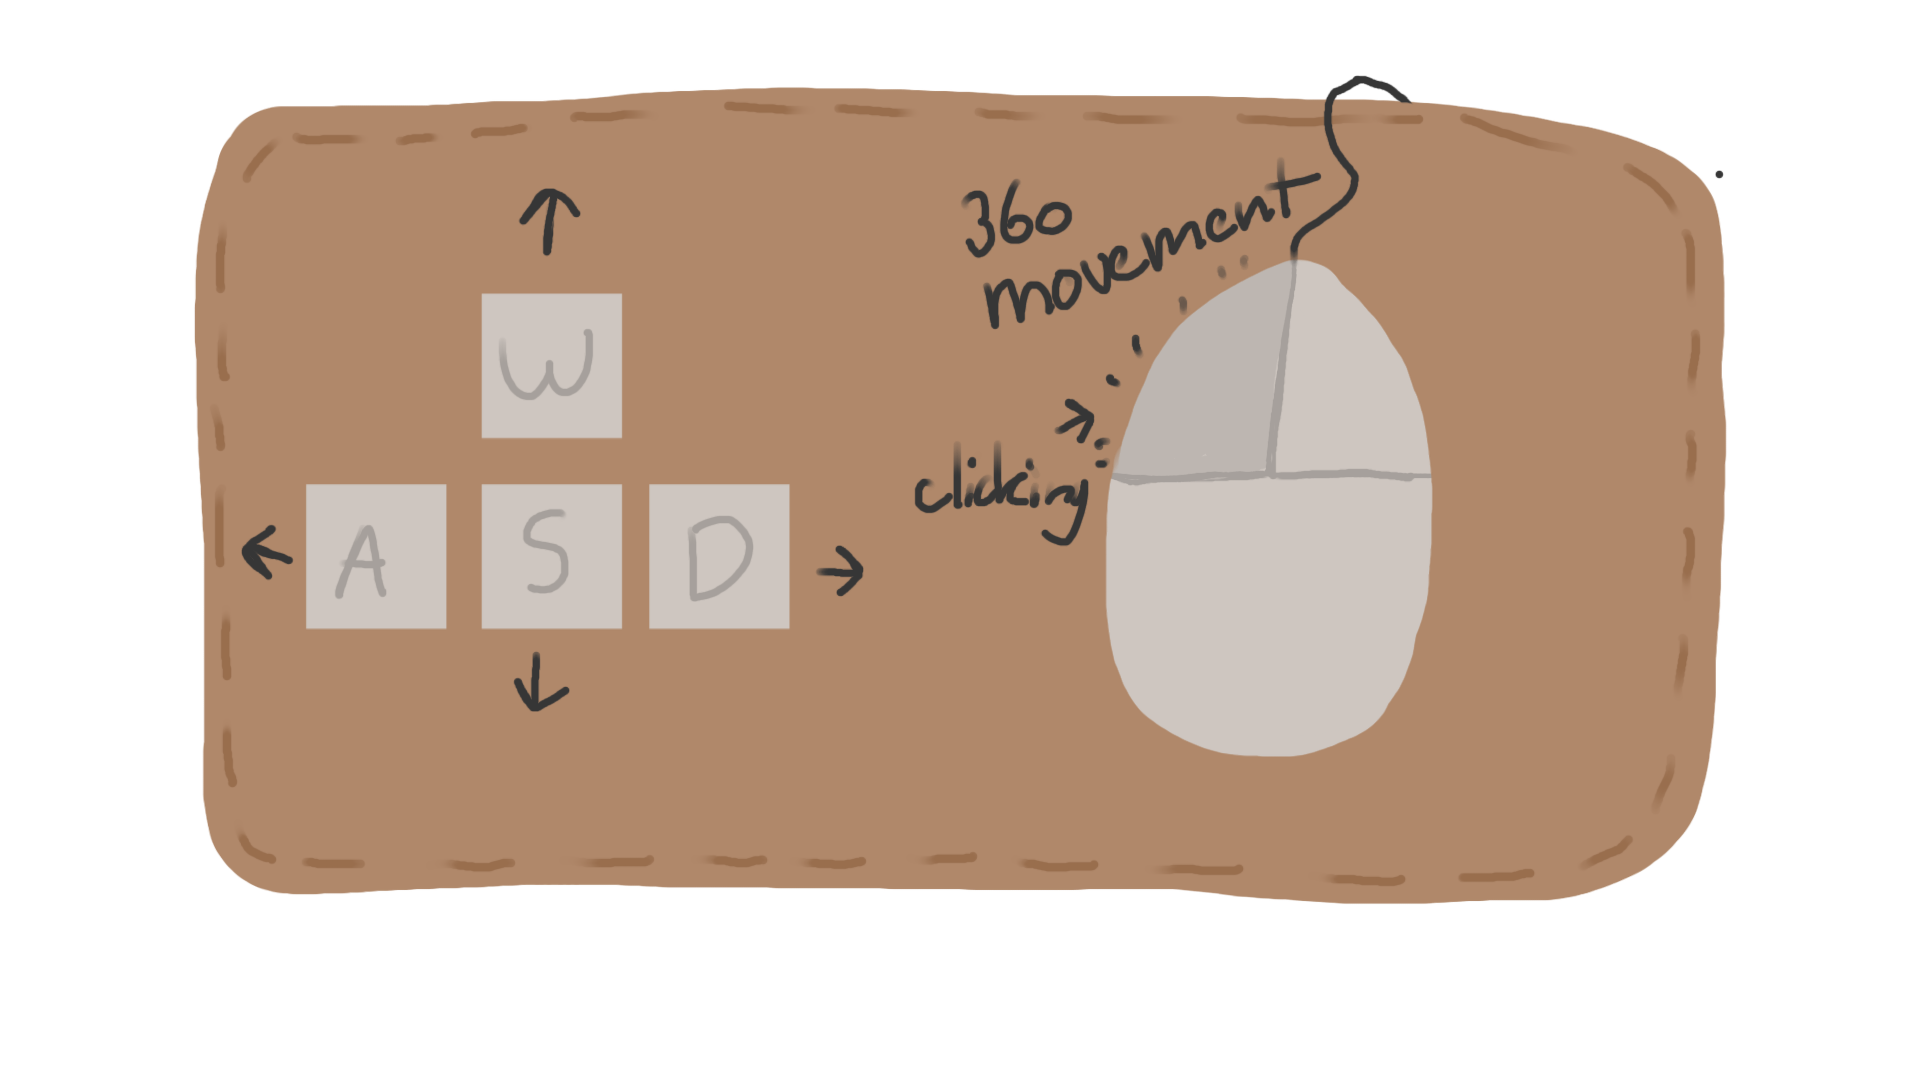 W
A S D
360
movement
clicking